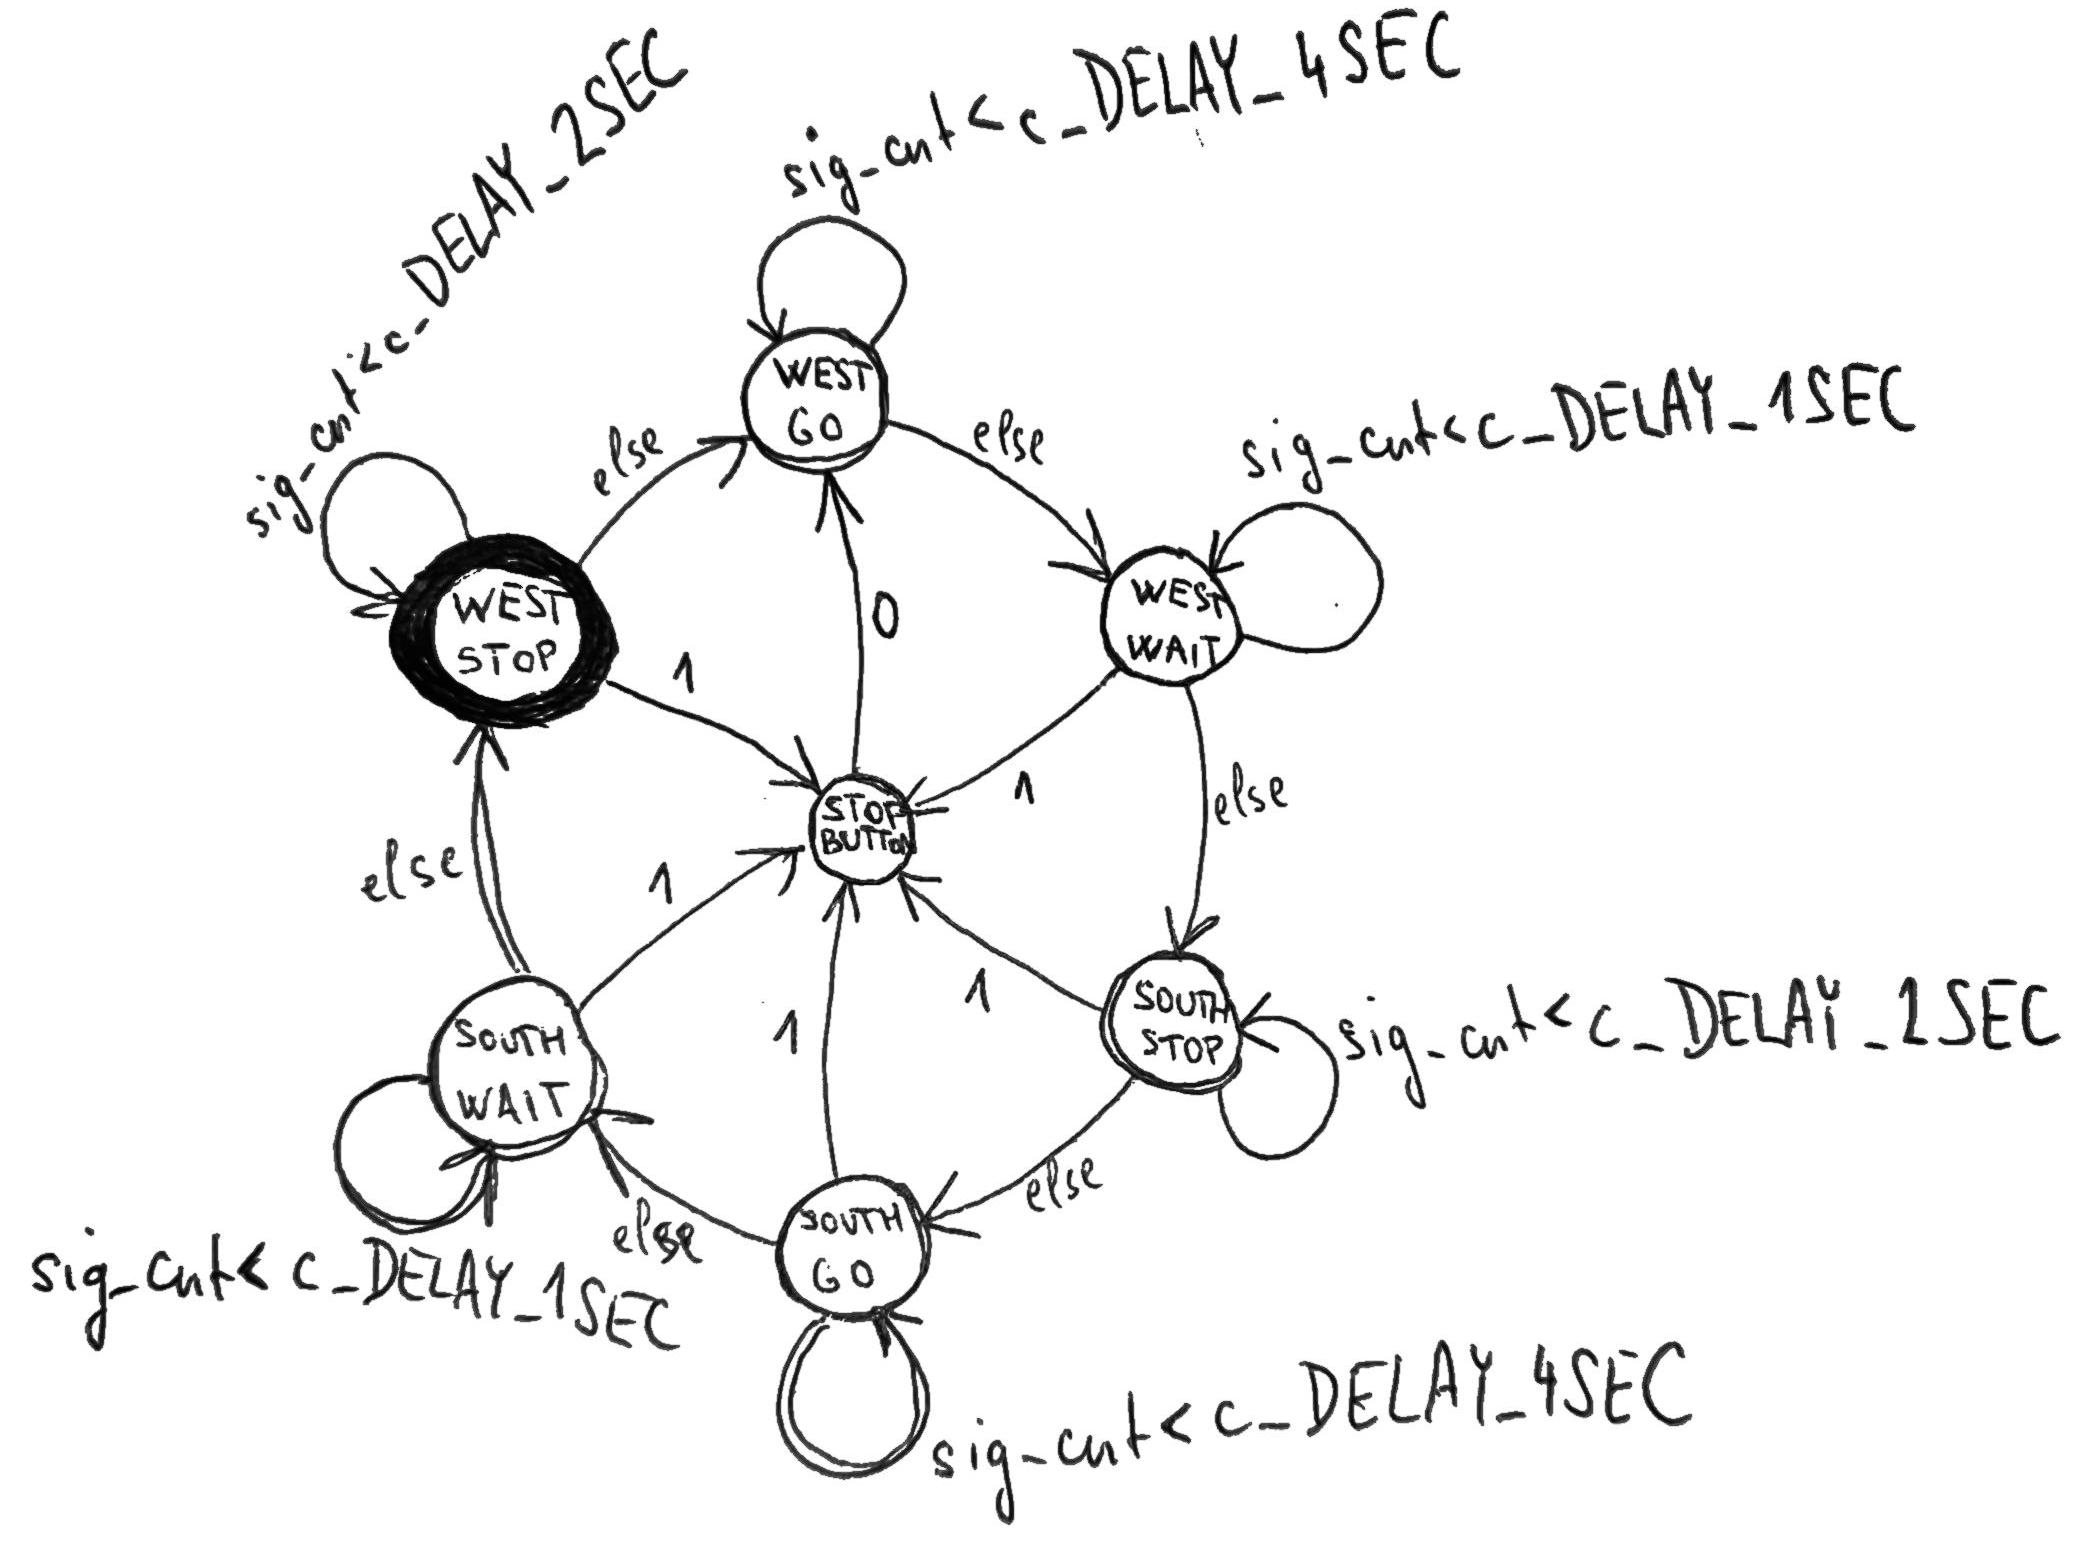 sig_cnt<c_DELAY_2SEC
sig_cnt<c_DELAY_4SEC
WEST
GO
else
else
sig_cnt<c_DELAY_1SEC
WEST
STOP
WEST
WAIT
0
1
1
else
STOP
BUTTON
else
1
1
1
SOUTH
STOP
sig_cnt<c_DELAY_2SEC
SOUTH
WAIT
else
else
SOUTH
GO
sig_cnt<c_DELAY_1SEC
sig_cnt<c_DELAY_4SEC